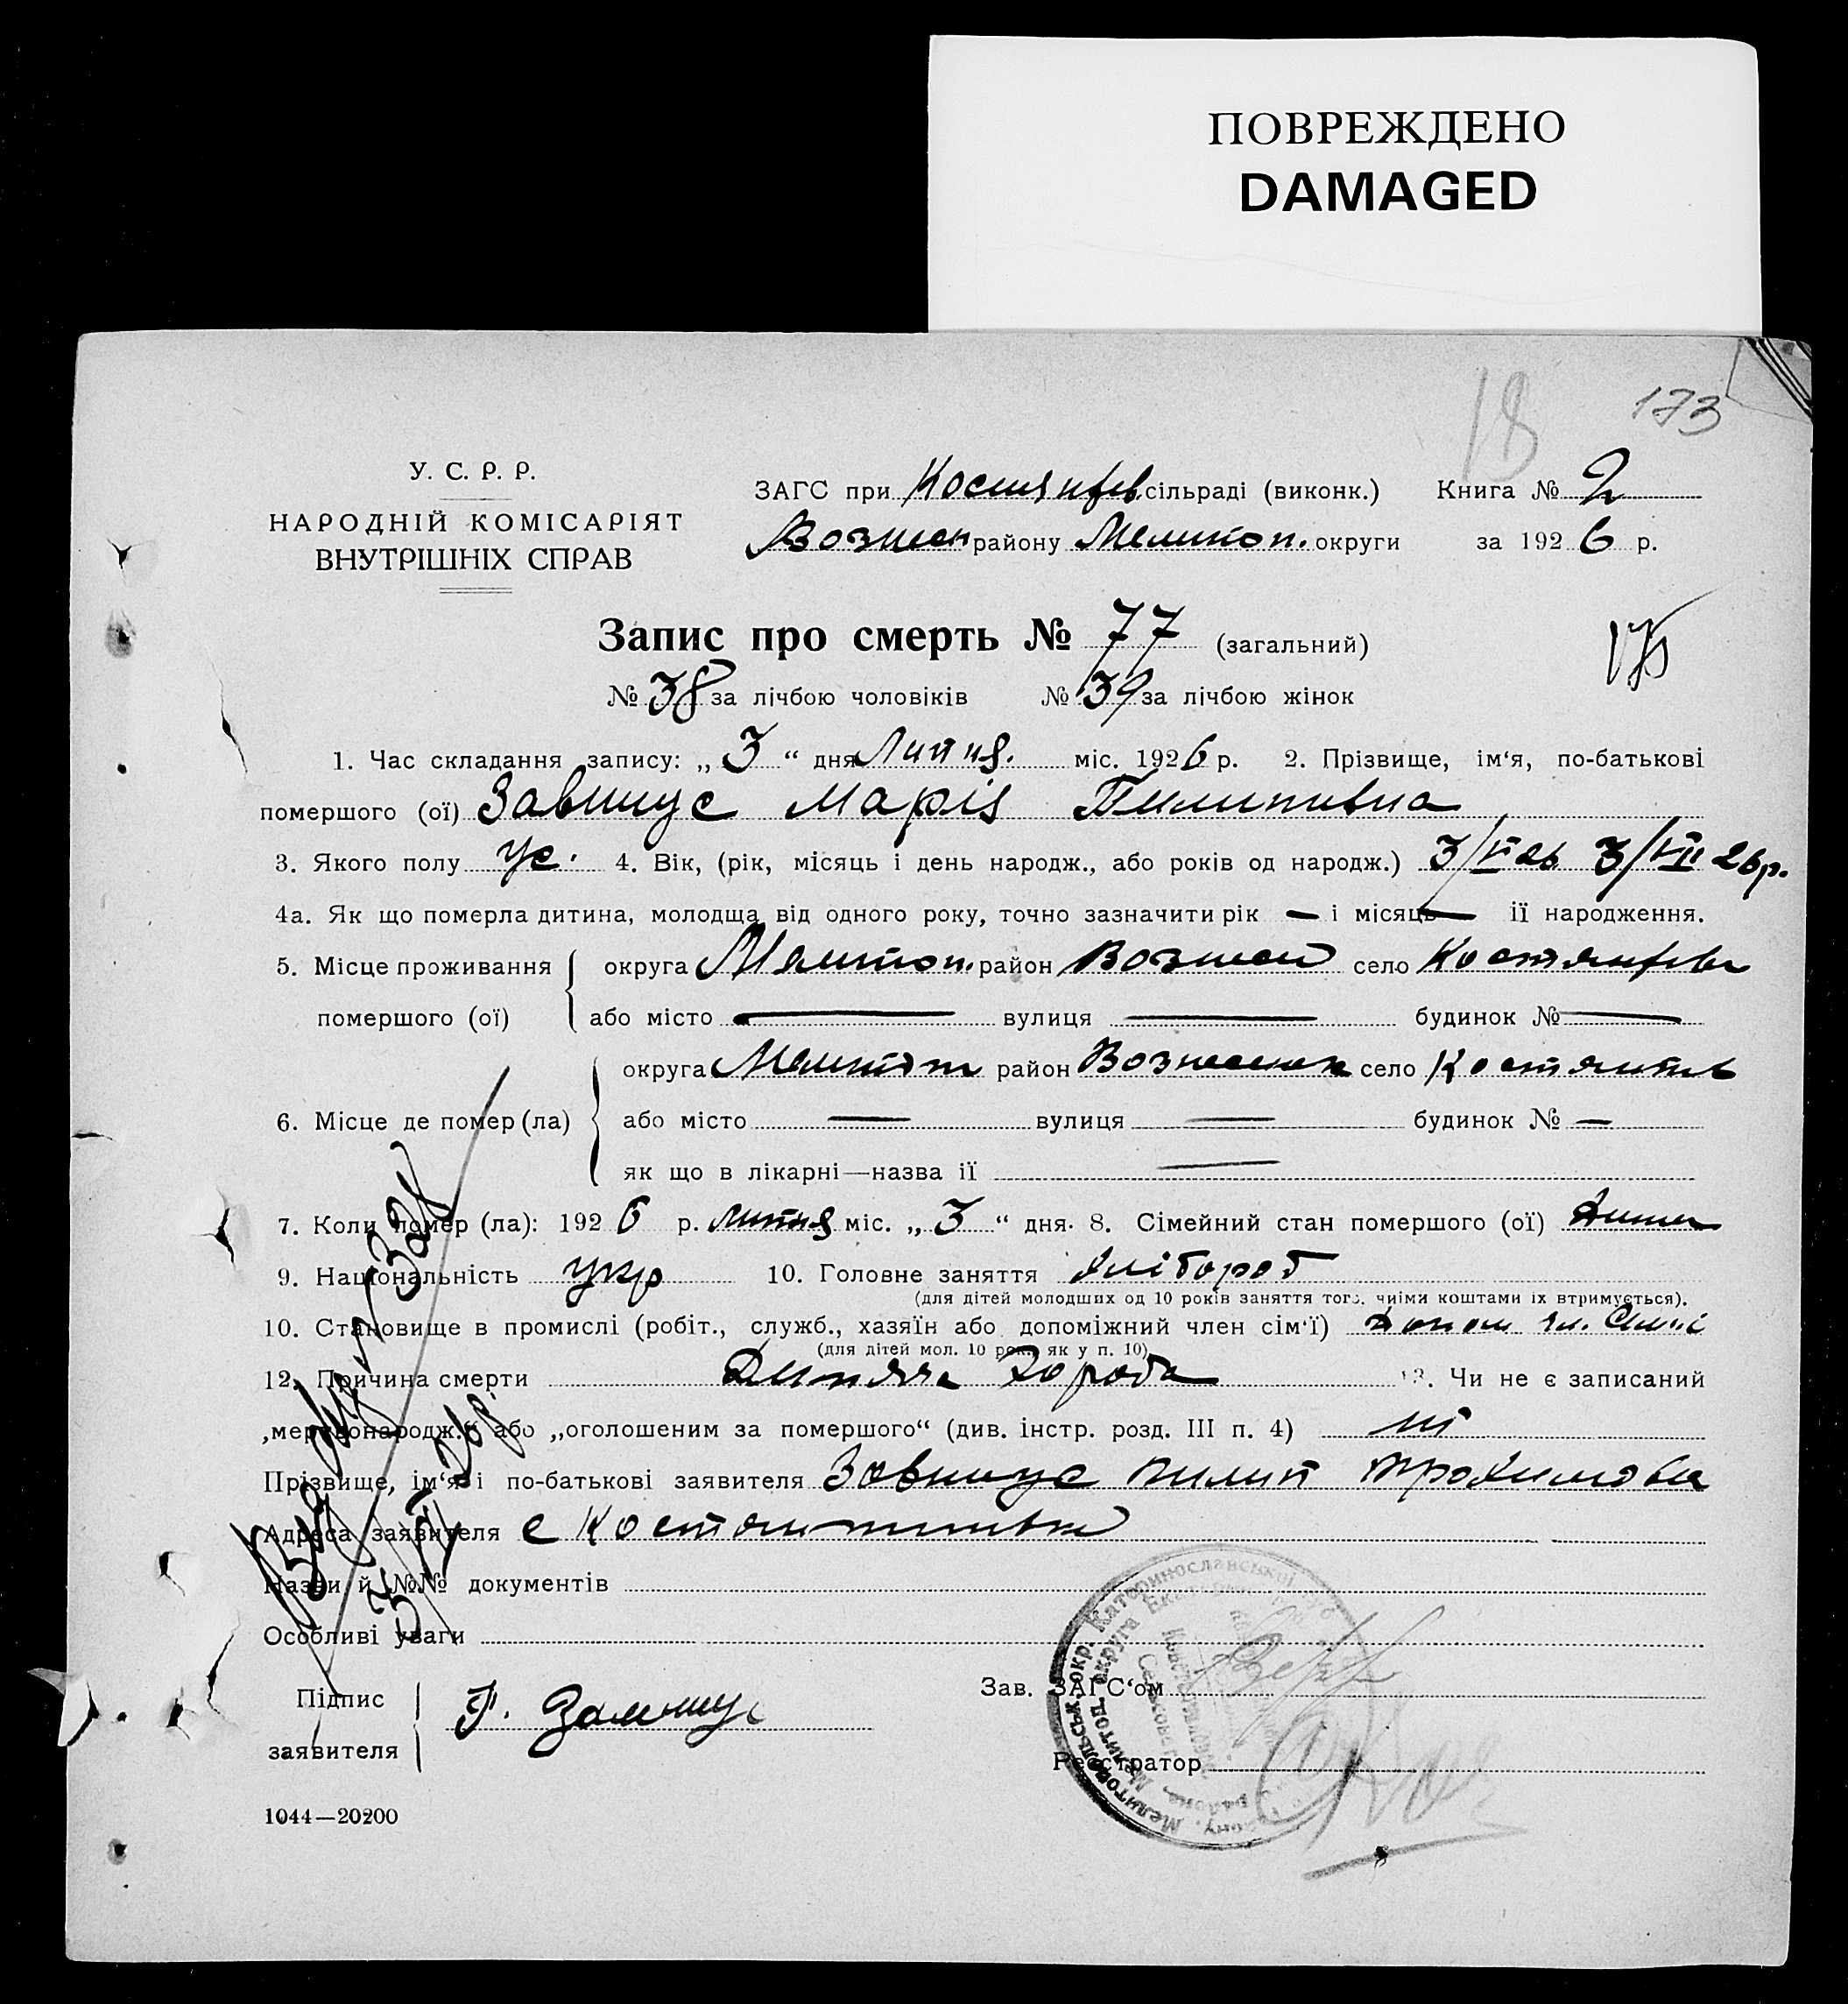 ПОВРЕЖДЕНО
DAMAGED
18 173
У. С. Р. Р.
НАРОДНІЙ КОМІСАРІЯТ
ВНУТРІШНІХ СПРАВ
ЗАГС при Костянтів сільраді (виконк.) Книга № 2
Вознесен району Мелитоп. округи за 1926 р.
Запис про смерть № 77 (загальний)
175
№ 38 за лічбою чоловіків № 39 за лічбою жінок
1. Час складання запису: „ 3 “ дня Липня. міс. 1926 р. 2. Прізвище, ім‘я, по-батькові
помершого (ої) Завшиус Марія Пилипивна
3. Якого полу 4. Вік, (рік, місяць і день народж., або років од народж.) 3/VI 26 3/VII 26 р.
4а. Як що померла дитина, молодща від одного року, точно зазначити рік — і місяць — її народження.
5. Місце проживання помершого (ої) округа Мелитоп. район Вознесен село Костянтів
або місто — вулиця — будинок № —
6. Місце де помер (ла) округа Мелитоп район Вознесенск село Костянтив
або місто — вулиця — будинок № —
як що в лікарні—назва її —
7. Коли помер (ла): 1926 р. липня міс. „ 3 “ дня. 8. Сімейний стан помершого (ої)
9. Національність укр 10. Головне заняття хлібороб
(для дітей молодших од 10 років заняття того, чиїми коштами їх втримується).
10. Становище в промислі (робіт., служб., хазяїн або допоміжний член сім‘ї) допом чл. сімї
(для дітей мол. 10 рок. як у п. 10)
12. Причина смерти Дитяча хороба 13. Чи не є записаний
„мертвонародж.“ або „оголошеним за помершого“ (див. інстр. розд. III п. 4) ні
Прізвище, ім‘я і по-батькові заявителя Завшиус Пилип Трохимови
Адреса заявителя с Костянтинивка
Назви й №№ документів
Особливі уваги
Підпис заявителя
Зав. ЗАГС‘ом
Реєстратор
1044—20200